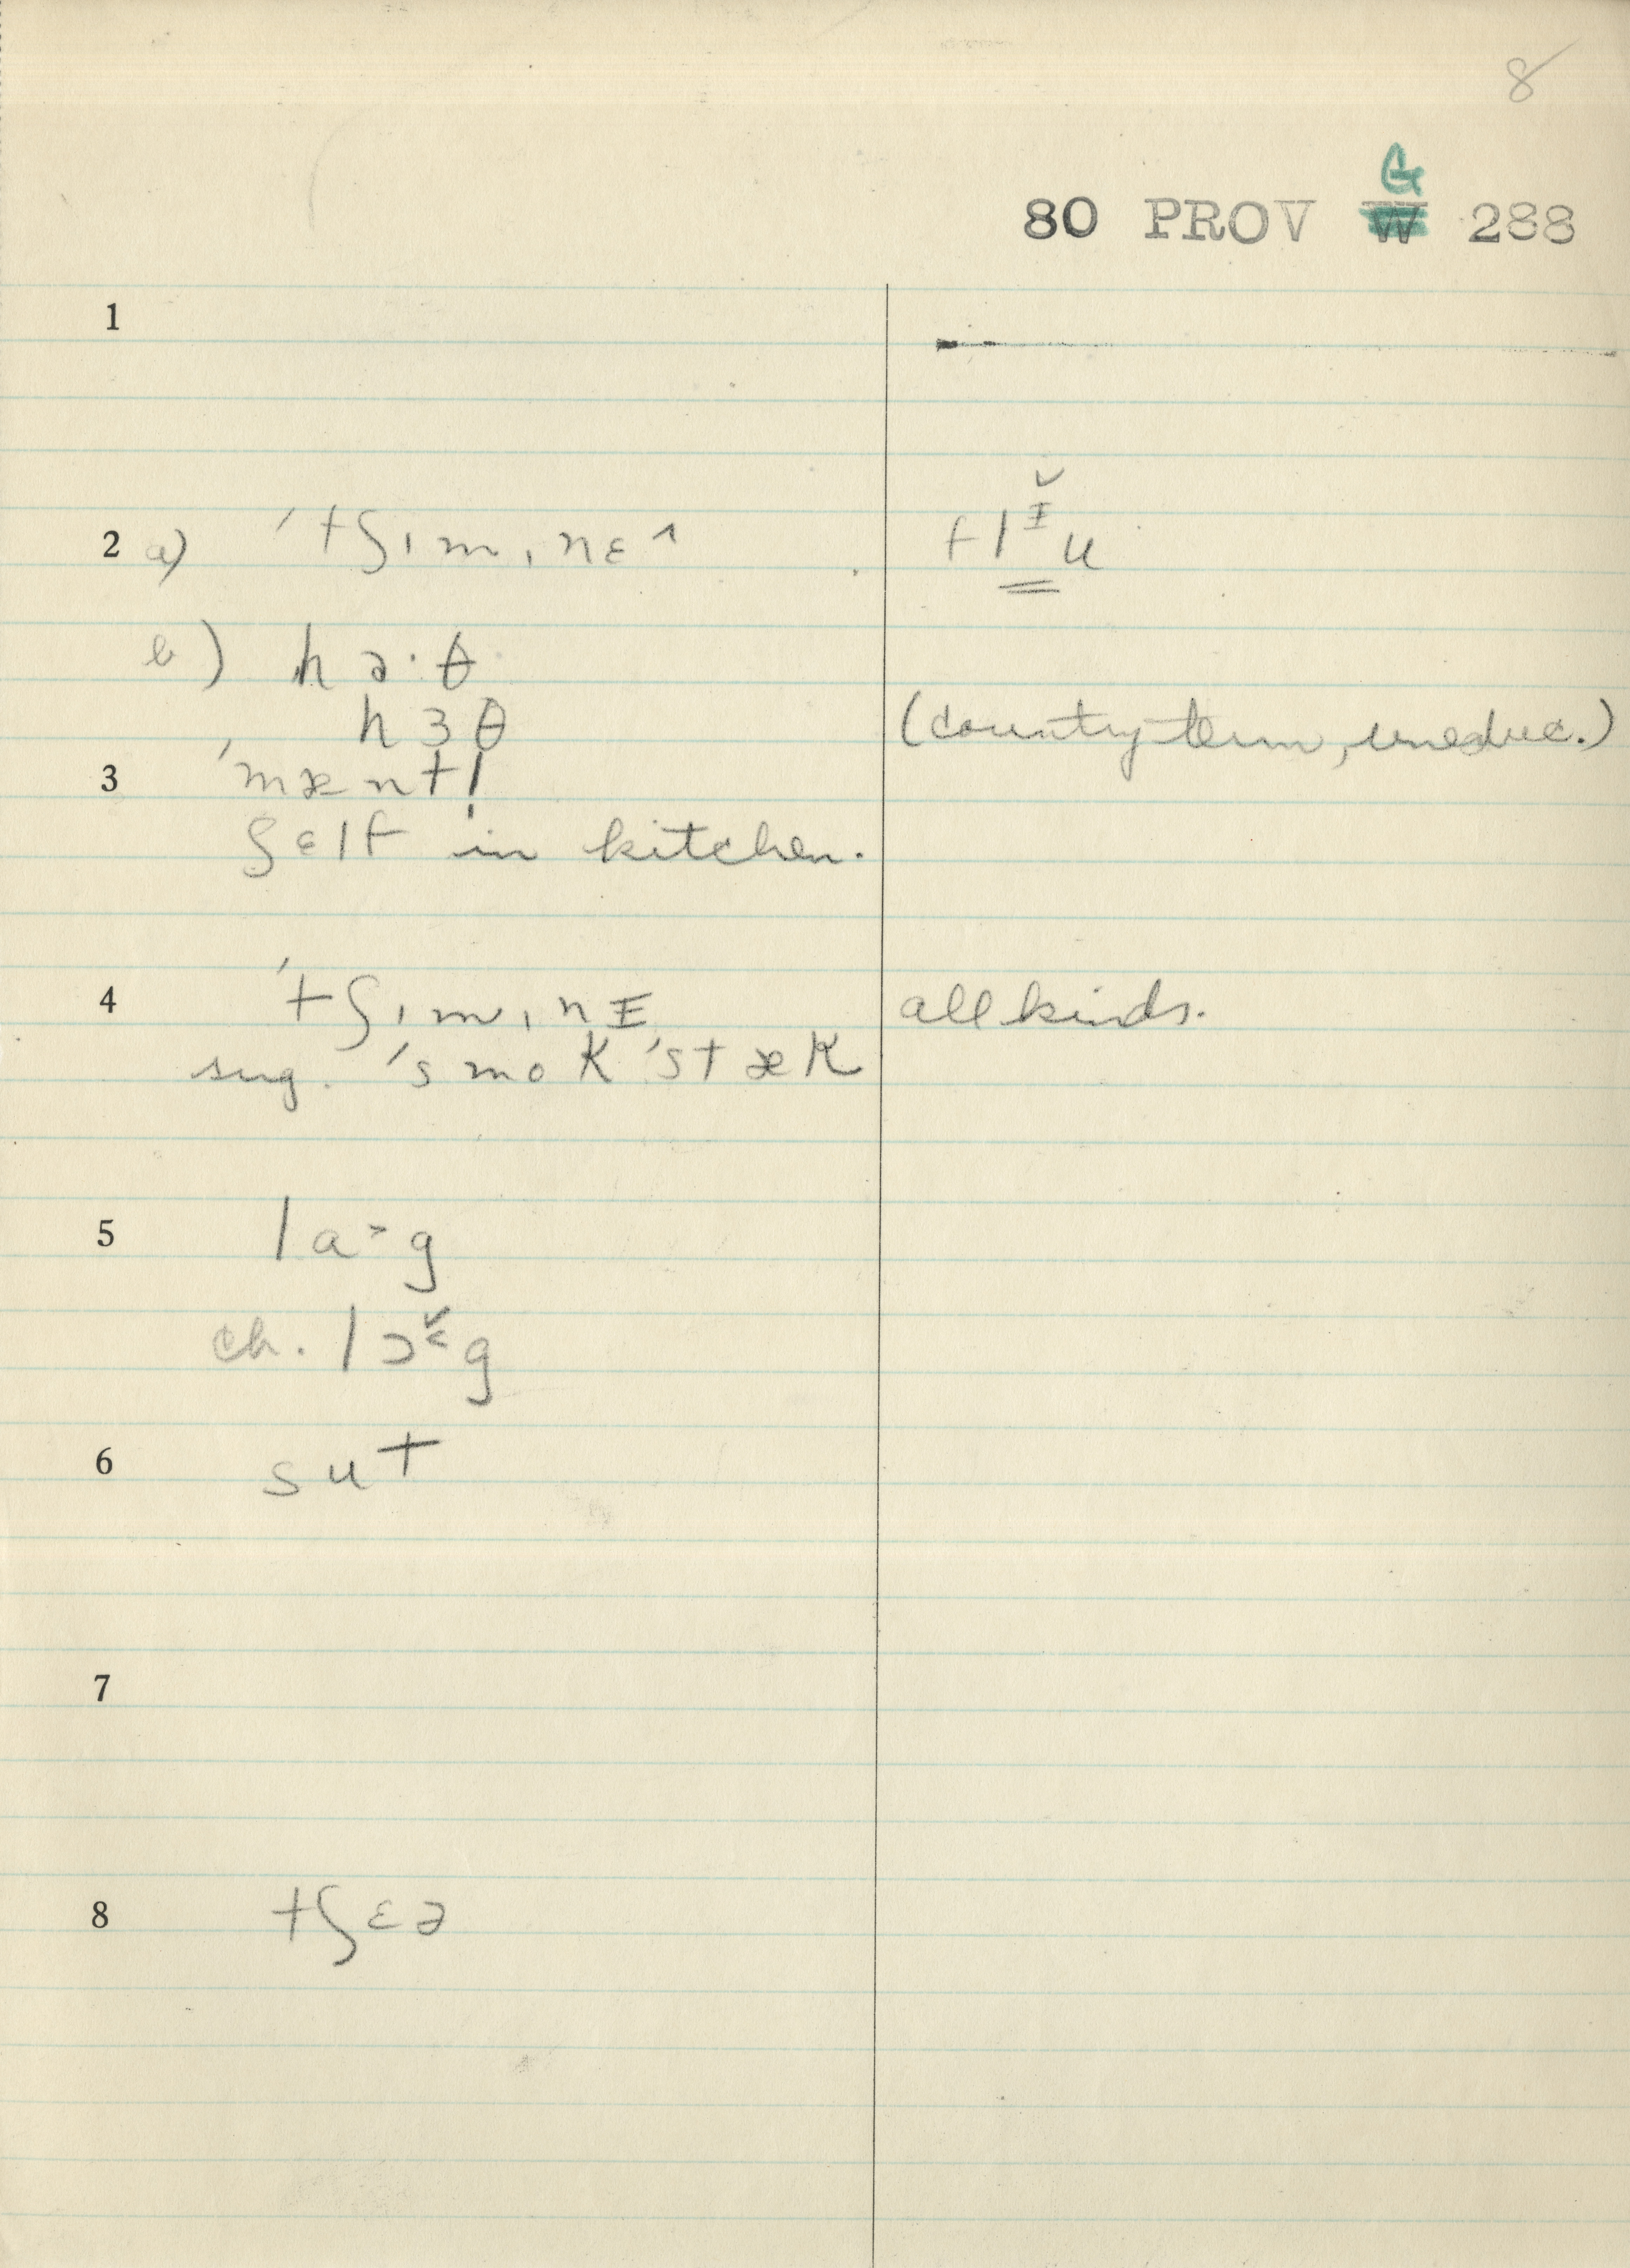 8
G
80 PROV W 288
1
2 a) ˈtʃɪmˌnɛ^ flᵻ̌u
b) hɑ·θ
hɜθ (country term, uneduc.)
3 ˈmæntl̩
ʃɛlf in kitchen.
4 ˈtʃɪmˌnɪ all kinds.
sug. ˈsmoK ˈstæK
5 lɑ>g
ch. lɔg
6 sut
7
8 tʃɛə